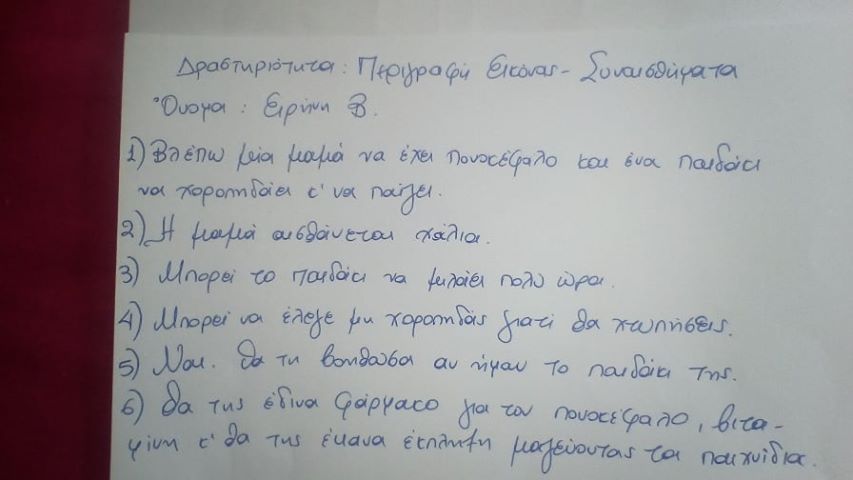 Δραστηριότητα: Περιγραφή Εικόνας - Συναισθήματα
Όνομα: Ειρήνη Β.
1) Βλέπω μία μαμά να έχει πονοκέφαλο και ένα παιδάκι
να χοροπηδάει κ' να παίζει.
2) Η μαμά αισθάνεται χάλια.
3) Μπορεί το παιδάκι να μιλάει πολύ ώρα.
4) Μπορεί να έλεγε μη χοροπηδάς γιατί θα χτυπήσεις.
5) Ναι. Θα τη βοηθούσα αν ήμουν το παιδάκι της.
6) Θα της έδινα φάρμακο για τον πονοκέφαλο, βιτα-
μίνη κ' θα της έκανα έκπληξη μαζεύοντας τα παιχνίδια.